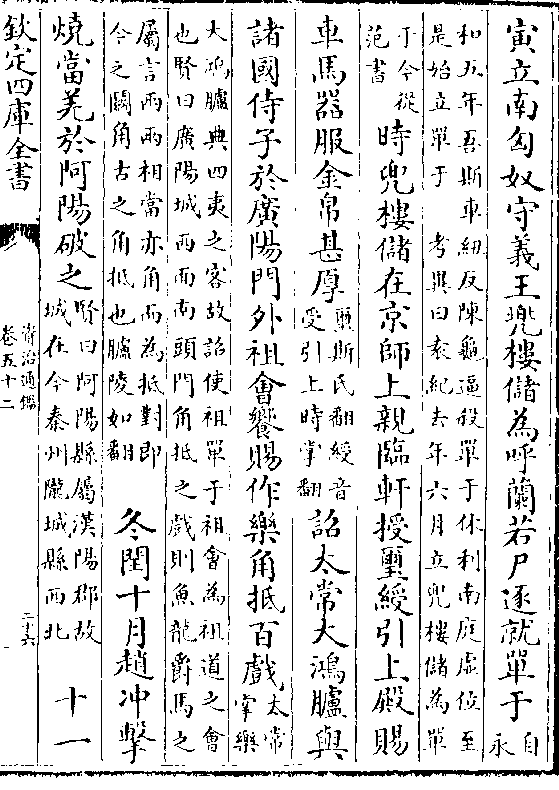 寅立南匈奴守義王兜樓儲為呼蘭若尸逐就單于自
永
和五年吾斯車紐反陳龜逼殺單于休利南庭虛位至
是始立單于 考異曰袁紀去年六月立兜樓儲為單
于今從
范書
時兜樓儲在京師上親臨軒授璽綬引上殿賜
車馬器服金帛甚厚
璽斯氏翻綬音
受引上時掌翻
詔太常大鴻臚與
諸國侍子於廣陽門外祖會饗賜作樂角抵百戲
太常
掌樂
大鴻臚典四夷之客故詔使祖單于祖會為祖道之會
也賢曰廣陽城西面南頭門角抵之戲則魚龍爵馬之
屬言兩兩相當亦角而為抵對即
今之鬬角古之角抵也臚陵如翻
冬閏十月趙冲擊
燒當羌於阿陽破之
賢曰阿陽縣屬漢陽郡故
城在今秦州隴城縣西北
十一
欽定四庫全書
資治通鑑
卷五十二
二十六